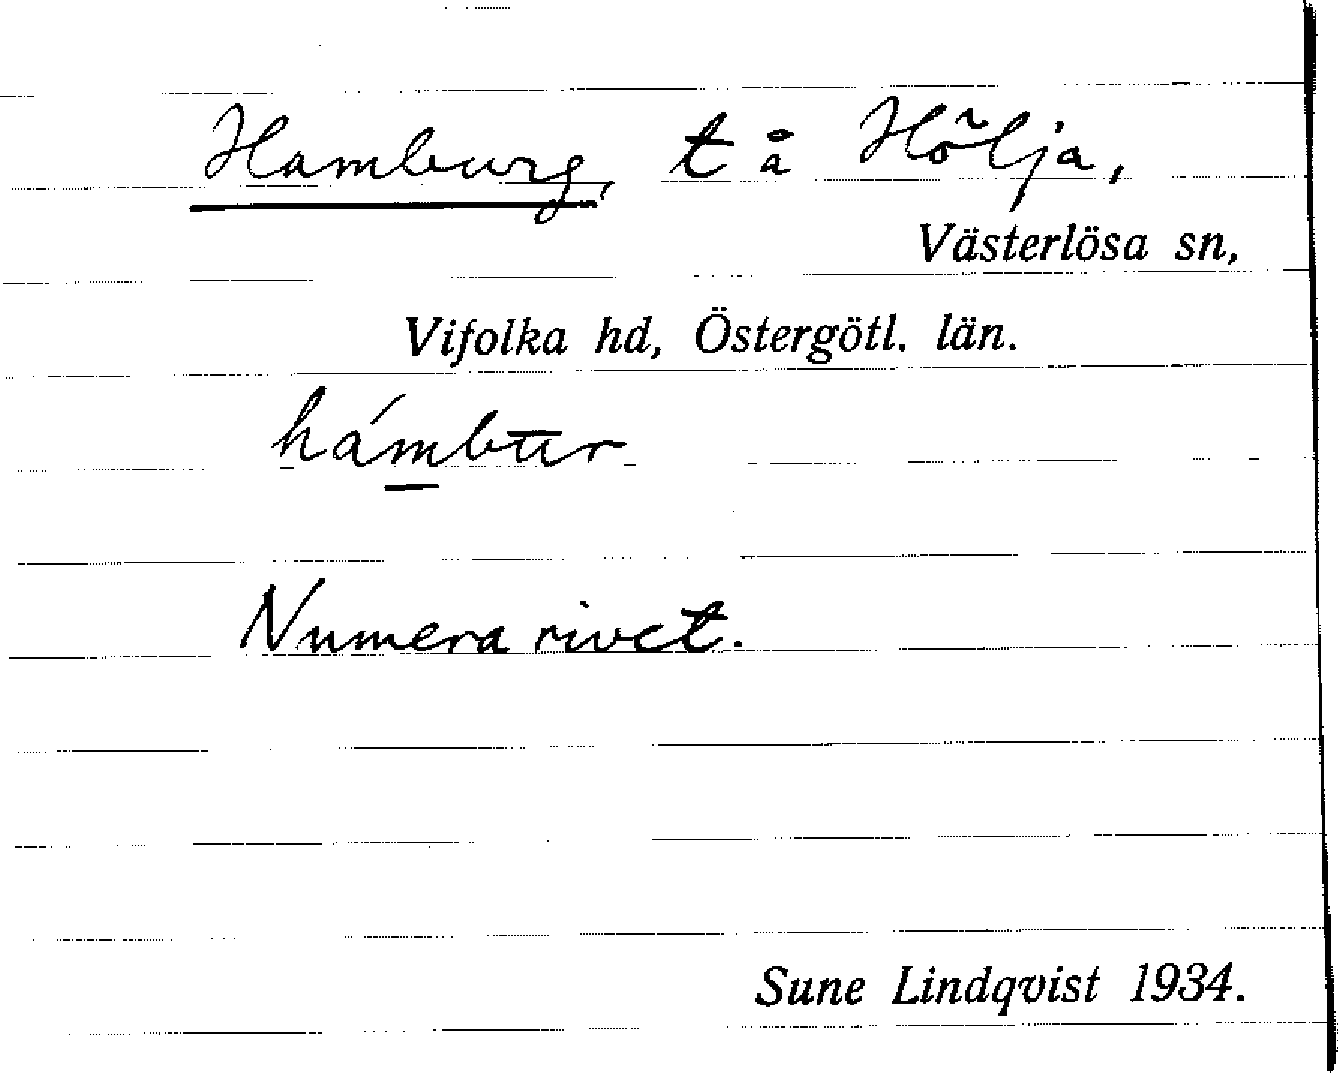 Hamburg, t å Hölja,
Västerlösa sn,
Vifolka hd, Östergötl. län.
hámbūr
Numera rivet.
Sune Lindqvist 1934.